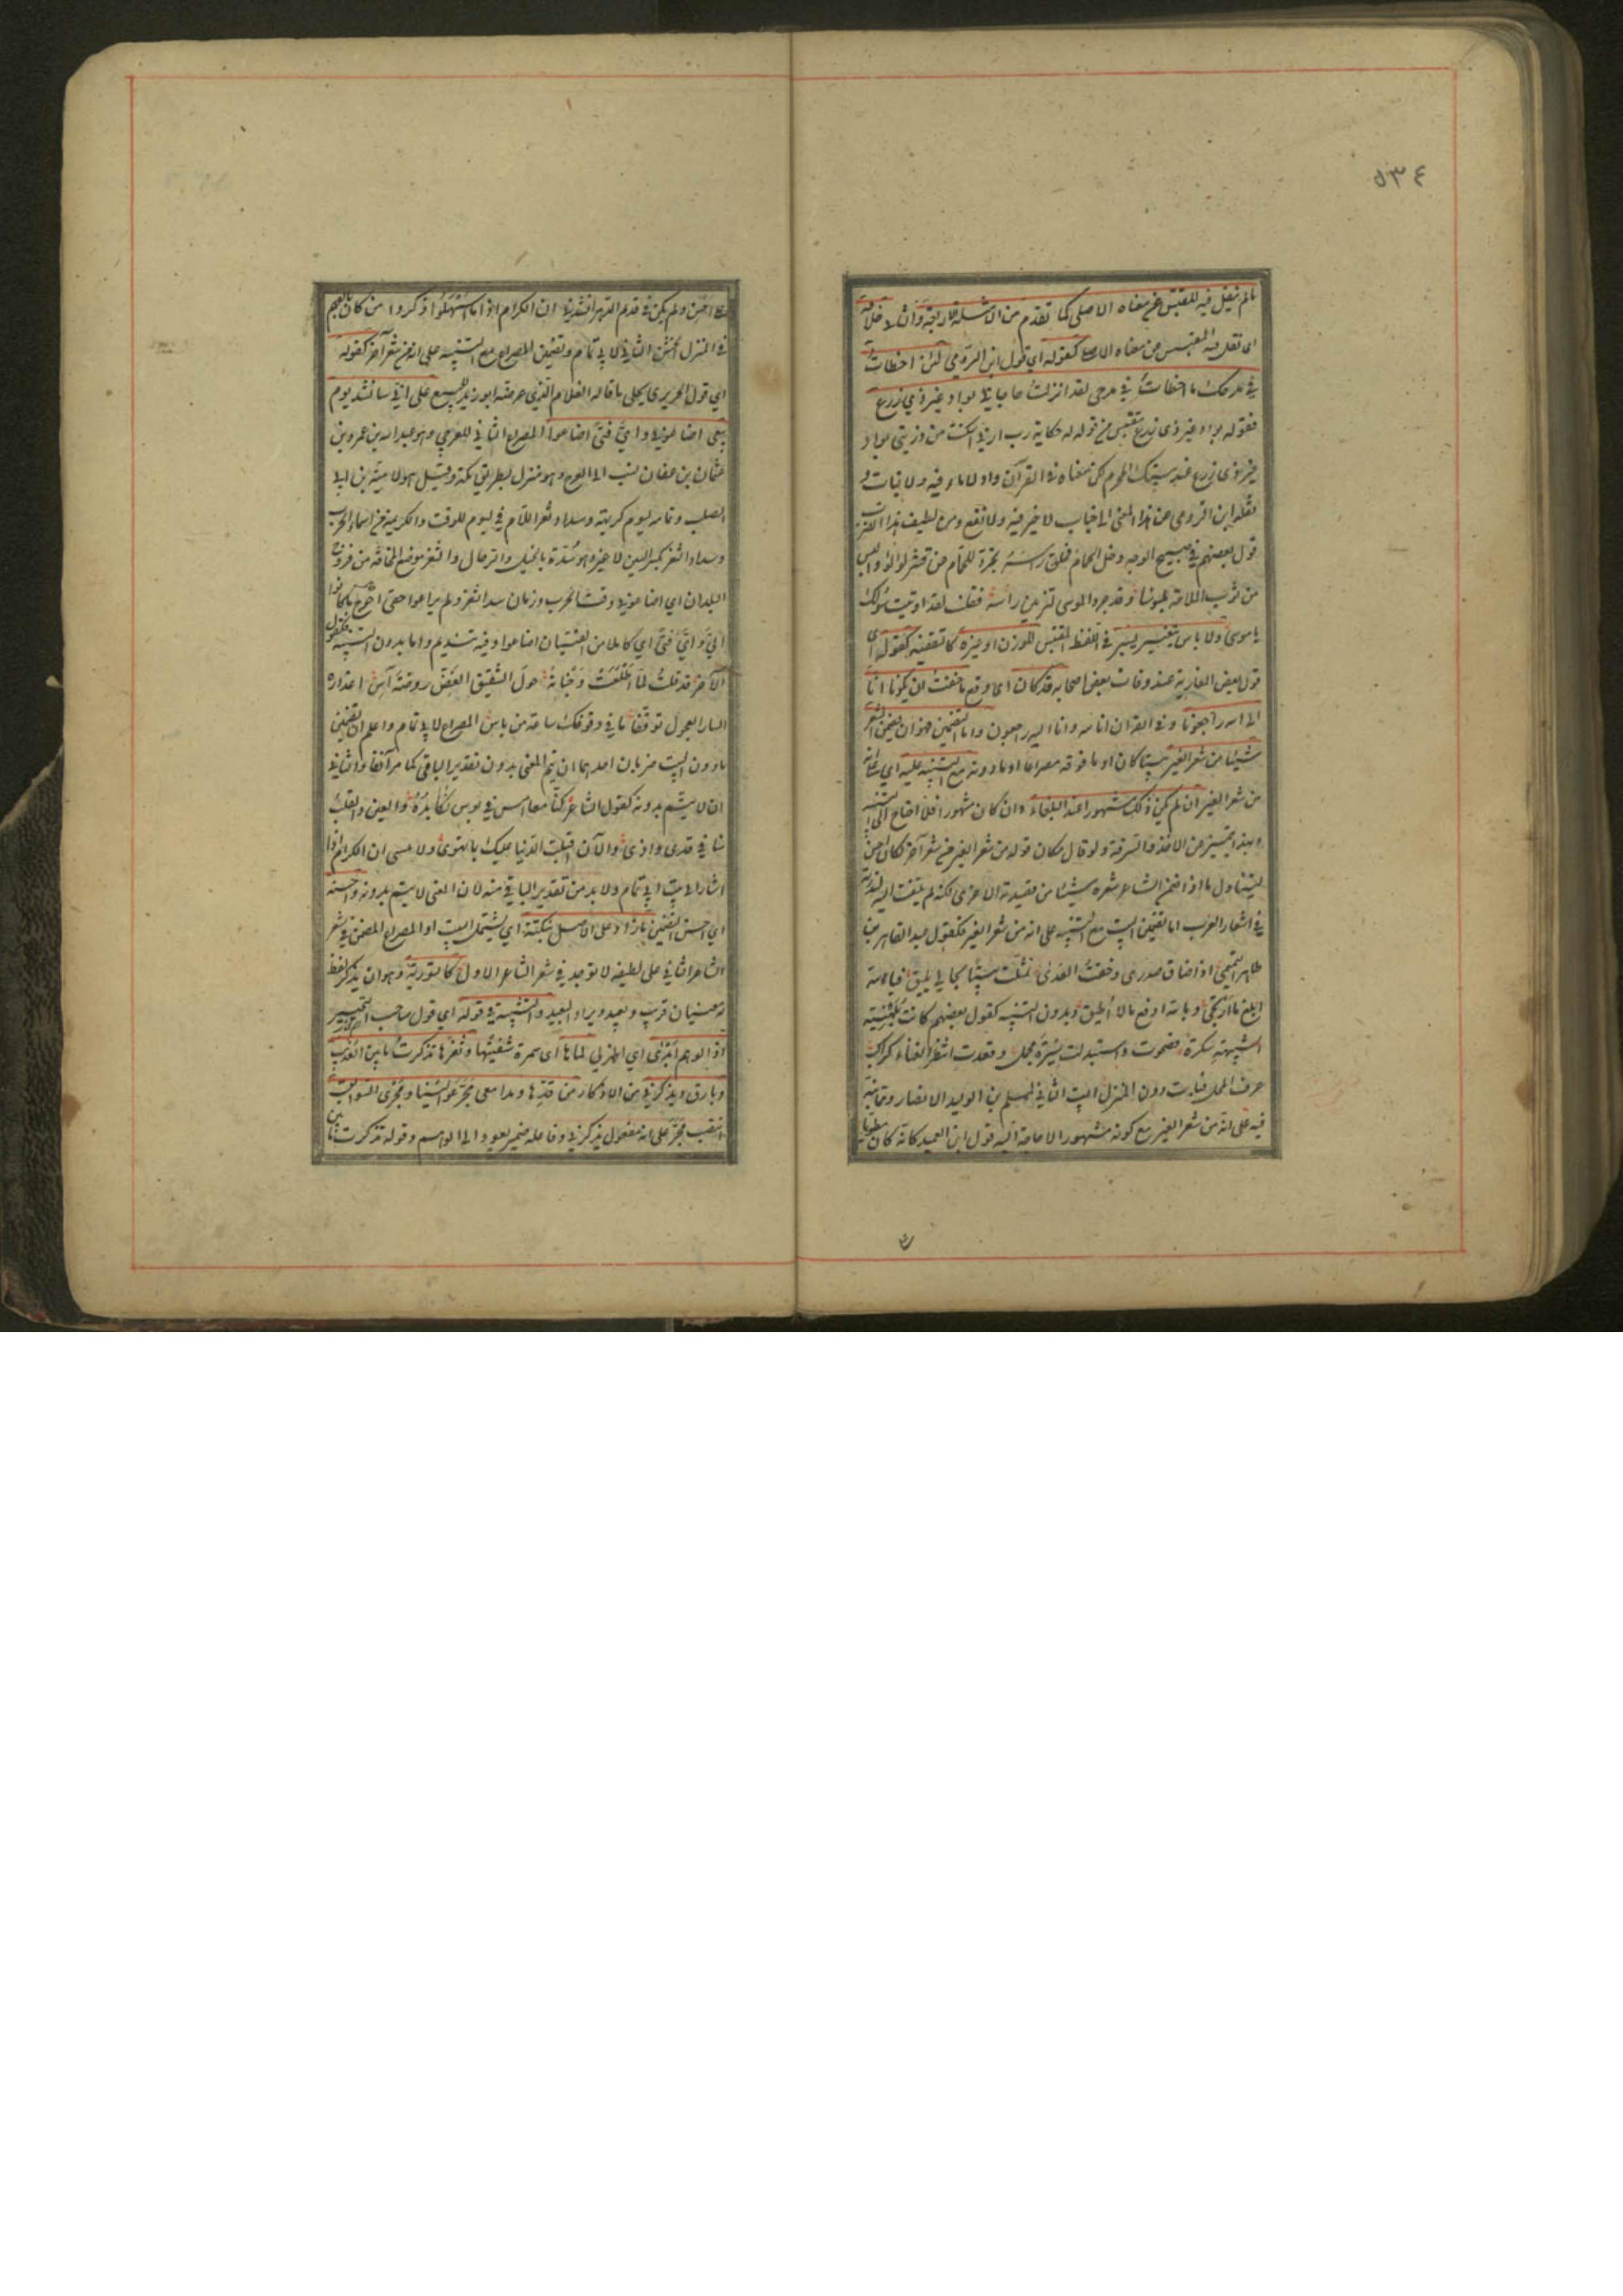 ٥٣٤
ما لم ينقل فيه المقتبس عن معناه الاصلي كما تقدم من الامثلة الاربعة والثاني خلافه
اى نقل فيه المقتبس عن معناه الاصلي كقوله اي قول ابن الرومي لئن اخطات
في مدحك ما اخطات في مدحي لقد انزلت حاجاتي بواد غير ذي زرع
فقوله بواد غير ذى زرع مقتبس من قوله حكاية رب اني اسكنت من ذريتي بواد
غير ذى زرع عند بيتك المحرم لكن معناه في القرآن واد لا ماء فيه ولا نبات و
نقله ابن الرومي عن هذا المعنى الى جناب لا خير فيه ولا نفع ومن لطيف هذا الضرب
قول بعضهم في صبيح الوجه دخل الحمام فحلق راسه تجرد للحمام عن قشر لؤلؤ والبس
من ثوب الملاحة ملبوسا وقد جرد الموسى لتزيين راسه فقلت لقد اوتيت سؤلك
يا موسى ولا باس بتغيير يسير في اللفظ المقتبس للوزن او غيره كالتقفية كقوله اى
قول بعض المغاربة عند وفات بعض اصحابه قد كان اى وقع ما خفت ان يكونا انا
الى الله راجعونا وفي القران انا لله وانا اليه راجعون واما التضمين فهو ان يضمن الشعر
شيئا من شعر الغير بيتا كان او ما فوقه مصراعا او ما دونه مع التنبيه عليه اي على انه
من شعر الغير ان لم يكن ذلك مشهورا عند البلغاء وان كان مشهورا فلا احتياج الى التنبيه
وبهذا يتميز عن الاخذ والسرقة ولو قال مكان قوله من شعر الغير من شعر آخر لكان احسن
ليتناول ما اذا ضمن الشاعر شعره شيئا من قصيدته الاخرى لكنه لم يلتفت اليه لندرته
في اشعار العرب اما تضمين البيت مع التنبيه على انه من شعر الغير فكقول عبد القاهر بن
طاهر التميمي اذا ضاق صدرى وخفت العدى تمثلت بيتا بحالي يليق فبالله
ابلغ ما ارتجي وبالله ادفع ما لا اطيق وبدون التنبيه كقول بعضهم كانت بلهنية
الشبيبة سكرة فصحوت واستبدلت سيرة مجمل وقعدت انتظر الفناء كراكب
عرف المحل فبات دون المنزل البيت الثاني لمسلم بن الوليد الانصاري
فيه على انه من شعر الغير مع كونه مشهورا لا حاجة اليه قول ابن العميد كانه كان مطويا
على احن ولم يكن في قديم الدهر انشدني ان الكرام اذا ما اسهلوا ذكروا من كان يالفهم
في المنزل الخشن الثاني لابي تمام وتضمين المصراع مع التنبيه على انه من شعر آخر كقوله
اي قول الحريري يحكى ما قاله الغلام الذي عرضه ابو زيد للبيع على اني سانشد يوم
بيعى اضاعوني واي فتى اضاعوا المصراع الثاني للعرجي وهو عبد الله بن عمرو بن
عثمان بن عفان نسب الى العرج وهو منزل بطريق مكة وقيل هو لامية بن ابي
الصلت وتمامه ليوم كريهة وسداد ثغر اللام في ليوم للوقت والكريهة من اسماء الحرب
وسداد الثغر بكسر السين لا غير هو سده بالخيل والرجال والثغر موضع المخافة من فروج
البلدان اي اضاعوني وقت الحرب وزمان سد الثغر ولم يراعوا حقي احوج ما كانوا
الي واي فتى اي كاملا من الفتيان اضاعوا وفيه تنديم واما بدون التنبيه فكقول
الآخر قد قلت لما اطلعت وجناته حول الشقيق الغض روضة آس اعذاره
السارى العجول توقفا ما في وقوفك ساعة من باس المصراع لابي تمام واعلم ان تضمين
ما دون البيت ضربان احدهما ان يتم المعنى بدون تقدير الباقي كما مر آنفا والثاني
ان لا يتم بدونه كقول الشاعر كنا معا امس في بوس نكابده والعين والقلب
منا في قذى واذى والآن اقبلت الدنيا عليك بما تهوى ولا تنسى ان الكرام اذا
اشار الى بيت ابي تمام ولا بد من تقدير الباقي منه لان المعنى لا يتم بدونه واحسنه
اي احسن التضمين ما زاد على الاصل بنكتة اي يشتمل البيت او المصراع المضمن في شعر
الشاعر الثاني على لطيفة لا توجد في شعر الشاعر الاول كالتورية وهو ان يذكر لفظ
له معنيان قريب وبعيد ويراد البعيد والتشبيه في قوله اي قول صاحب التحبير
اذا الوهم ابدى اي اظهر لي لماها اى سمرة شفتيها وثغرها تذكرت ما بين العذيب
وبارق ويذكرني من الاذكار من قدها ومدامعي مجر عوالينا ومجرى السوابق
انتصب مجر على انه مفعول يذكرني وفاعله ضمير يعود الى الوهم وقوله تذكرت ما بين